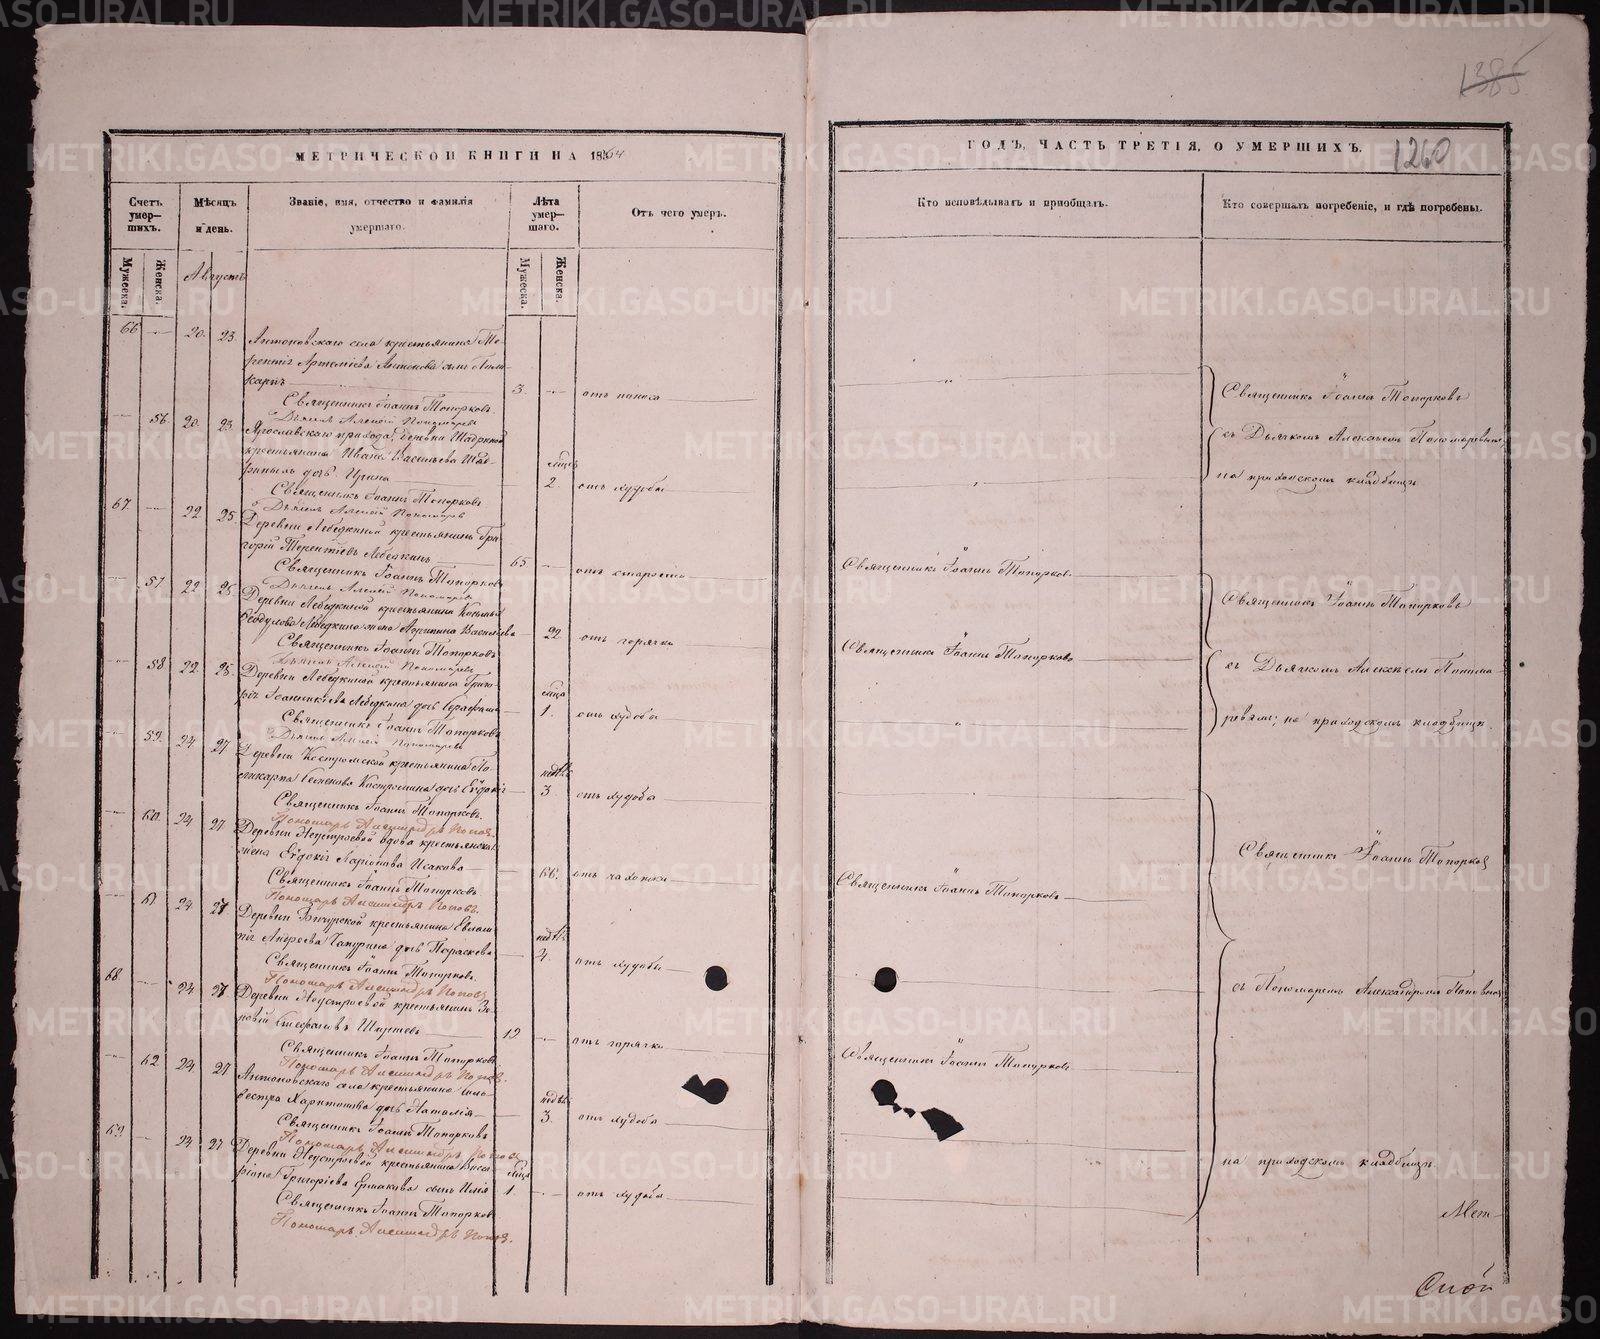 1385
МЕТРИЧЕСКОЙ КНИГИ НА 1864
Счетъ умер-
шихъ.
Мѣсяцъ
и день.
Званіе, имя, отчество и фамилія
умершаго.
Лѣта
умер-
шаго.
Отъ чего умеръ.
Мужеска.
Женска.
Августъ
Мужеска.
Женска.
66 20. 23. Антоновскаго села крестьянина Те-
рентія Артеміева Антонова сынъ Поли-
карпъ
3. отъ поноса
Священникъ Іоаннъ Топорковъ.
Дьячекъ Алексій Пономаревъ
56. 20. 23 Ярославскаго прихода, деревни Шадриной
крестьянина Ивана Васильева Шад-
рина дочь Ирина
мѣсц. 2. отъ худобы
Священникъ Іоаннъ Топорковъ
Дьячекъ Алексій Пономаревъ
67. 22 25. Деревни Лебедкиной крестьянинъ Гри-
горій Терентіевъ Лебедкинъ
65 отъ старости
Священникъ Іоаннъ Топорковъ
Дьячекъ Алексій Пономаревъ
57 22 25. Деревни Лебедкиной крестьянина Козьмы
Ѳеодулова Лебедкина жена Агрипина Васильева
22 отъ горячки
Священникъ Іоаннъ Топорковъ
Дьячекъ Алексій Пономаревъ
58. 22 25. Деревни Лебедкиной крестьянина Григо-
рія Іоанникіева Лебедкина дочь Серафима
мѣца 1. отъ худобы
Священникъ Іоаннъ Топорковъ
Дьячекъ Алексій Пономаревъ
59. 24 27 Деревни Костромской крестьянина По-
ликарпа Семенова Костромина дочь Евдокія
недѣль 3 отъ худобы
Священникъ Іоаннъ Топорковъ.
Пономарь Александръ Поповъ.
60. 24 27 Деревни Неустроевой вдова крестьянская
жена Евдокія Ларіонова Исакова
66. отъ чахотки
Священникъ Іоаннъ Топорковъ
Пономарь Александръ Поповъ.
61. 24. 27 Деревни Бичурской крестьянина Евлам-
пія Андреева Чапурина дочь Параскева
недѣль 4. отъ худобы
Священникъ Іоаннъ Топорковъ.
Пономарь Александръ Поповъ
68. 24 27 Деревни Неустроевой крестьянинъ Зи-
новій
19 отъ горячки
Священникъ Іоаннъ Топорковъ
Пономарь Александръ Поповъ.
62. 24 27 Антоновскаго села крестьянина Силь-
вестра Харитонова дочь Наталія
недѣль 3. отъ худобы
Священникъ Іоаннъ Топорковъ
Пономарь Александръ Поповъ
69. 24 27 Деревни Неустроевой крестьянина Висса-
ріона Григоріева Ермакова сынъ Илія
мѣца 1 отъ худобы
Священникъ Іоаннъ Топорковъ
Пономарь Александръ Поповъ.
ГОДЪ, ЧАСТЬ ТРЕТІЯ, О УМЕРШИХЪ.
1260
Кто исповѣдывалъ и пріобщалъ.
Кто совершалъ погребеніе, и гдѣ погребены.
Священникъ Іоаннъ Топорковъ
съ Дьячкомъ Алексѣемъ Пономаревымъ
на приходскомъ кладбищѣ.
Священникъ Іоаннъ Топорковъ.
Священникъ Іоаннъ Топорковъ
Священникъ Іоаннъ Топорковъ
съ Дьячкомъ Алексѣемъ Понома-
ревымъ; на приходскомъ кладбищѣ.
Священникъ Іоаннъ Топорковъ
Священникъ Іоаннъ Топорковъ
съ Пономаремъ Александромъ Поповымъ
Священникъ Іоаннъ Топорковъ
на приходскомъ кладбищѣ.
Мет-
METRIKI.GASO-URAL.RU